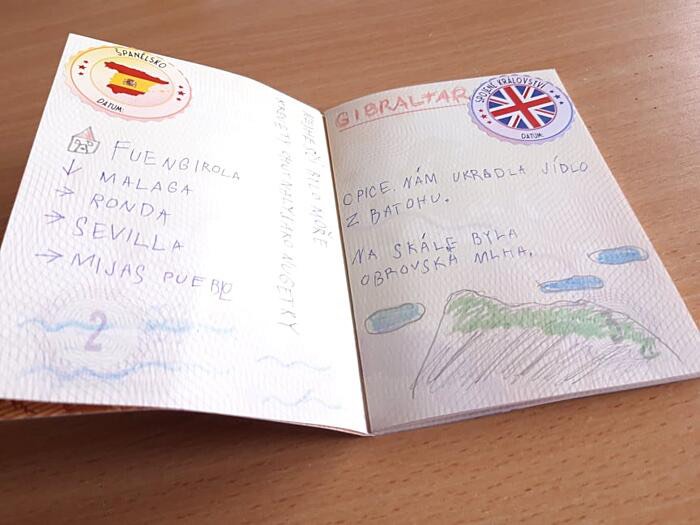 ŠPANĚLSKO
DATUM:
FUENGIROLA
↓ MALAGA
→ RONDA
→ SEVILLA
→ MIJAS PUEB
2
NEJHEZČÍ BYLO MOŘE
JAKO NUGETKY
GIBRALTAR
SPOJENÉ KRÁLOVSTVÍ
DATUM:
OPICE NÁM UKRADLA JÍDLO
Z BATOHU.
NA SKÁLE BYLA
OBROVSKÁ MLHA.